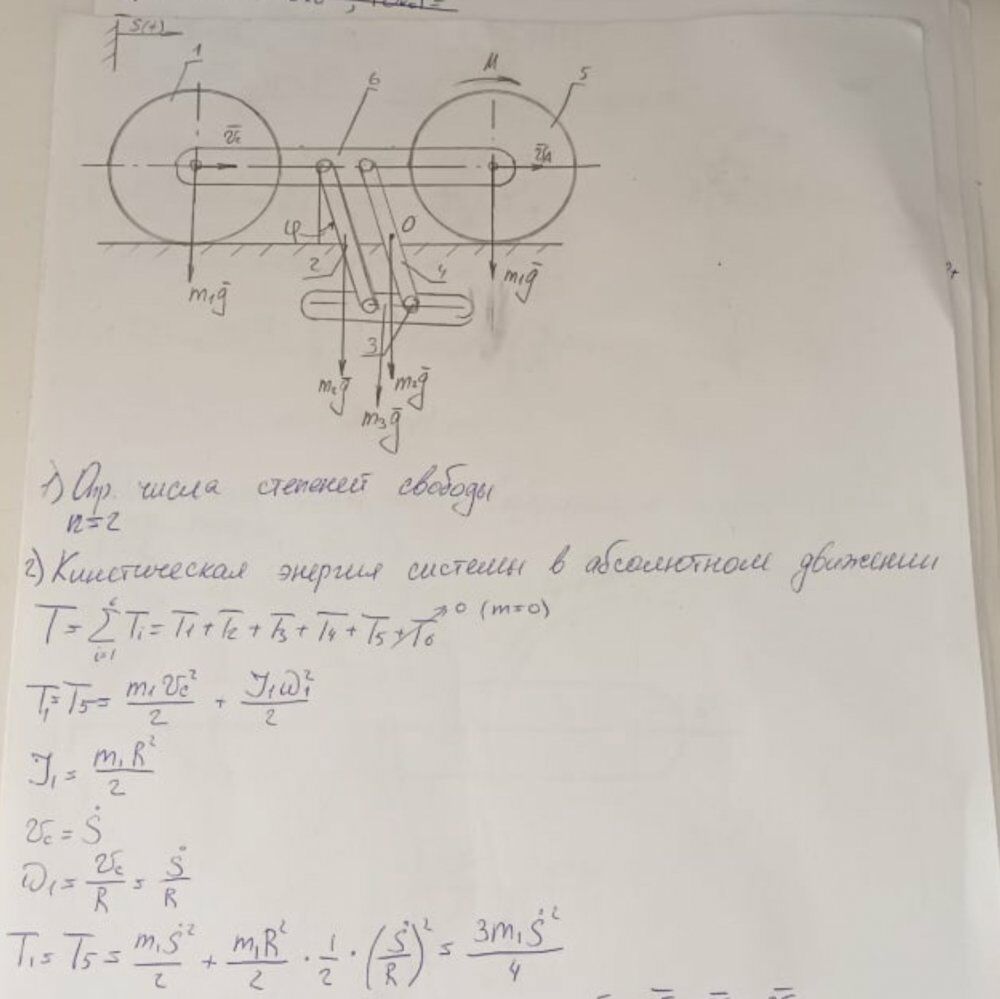 S(+)
1
6
M
5
v̄c
v̄A
φ
O
2
4
m₁ḡ
m₁ḡ
3
m₂ḡ
m₂ḡ
m₃ḡ
1) Опр. числа степеней свободы
n=2
2) Кинетическая энергия системы в абсолютном движении
T = Σ⁶ᵢ₌₁ Tᵢ = T₁ + T₂ + T₃ + T₄ + T₅ + T₆ → 0 (m=0)
T₁ = T₅ = m₁vc²/2 + J₁ω₁²/2
J₁ = m₁R²/2
vc = Ṡ
ω₁ = vc/R = Ṡ/R
T₁ = T₅ = m₁Ṡ²/2 + m₁R²/2 · 1/2 · (Ṡ/R)² = 3m₁Ṡ²/4